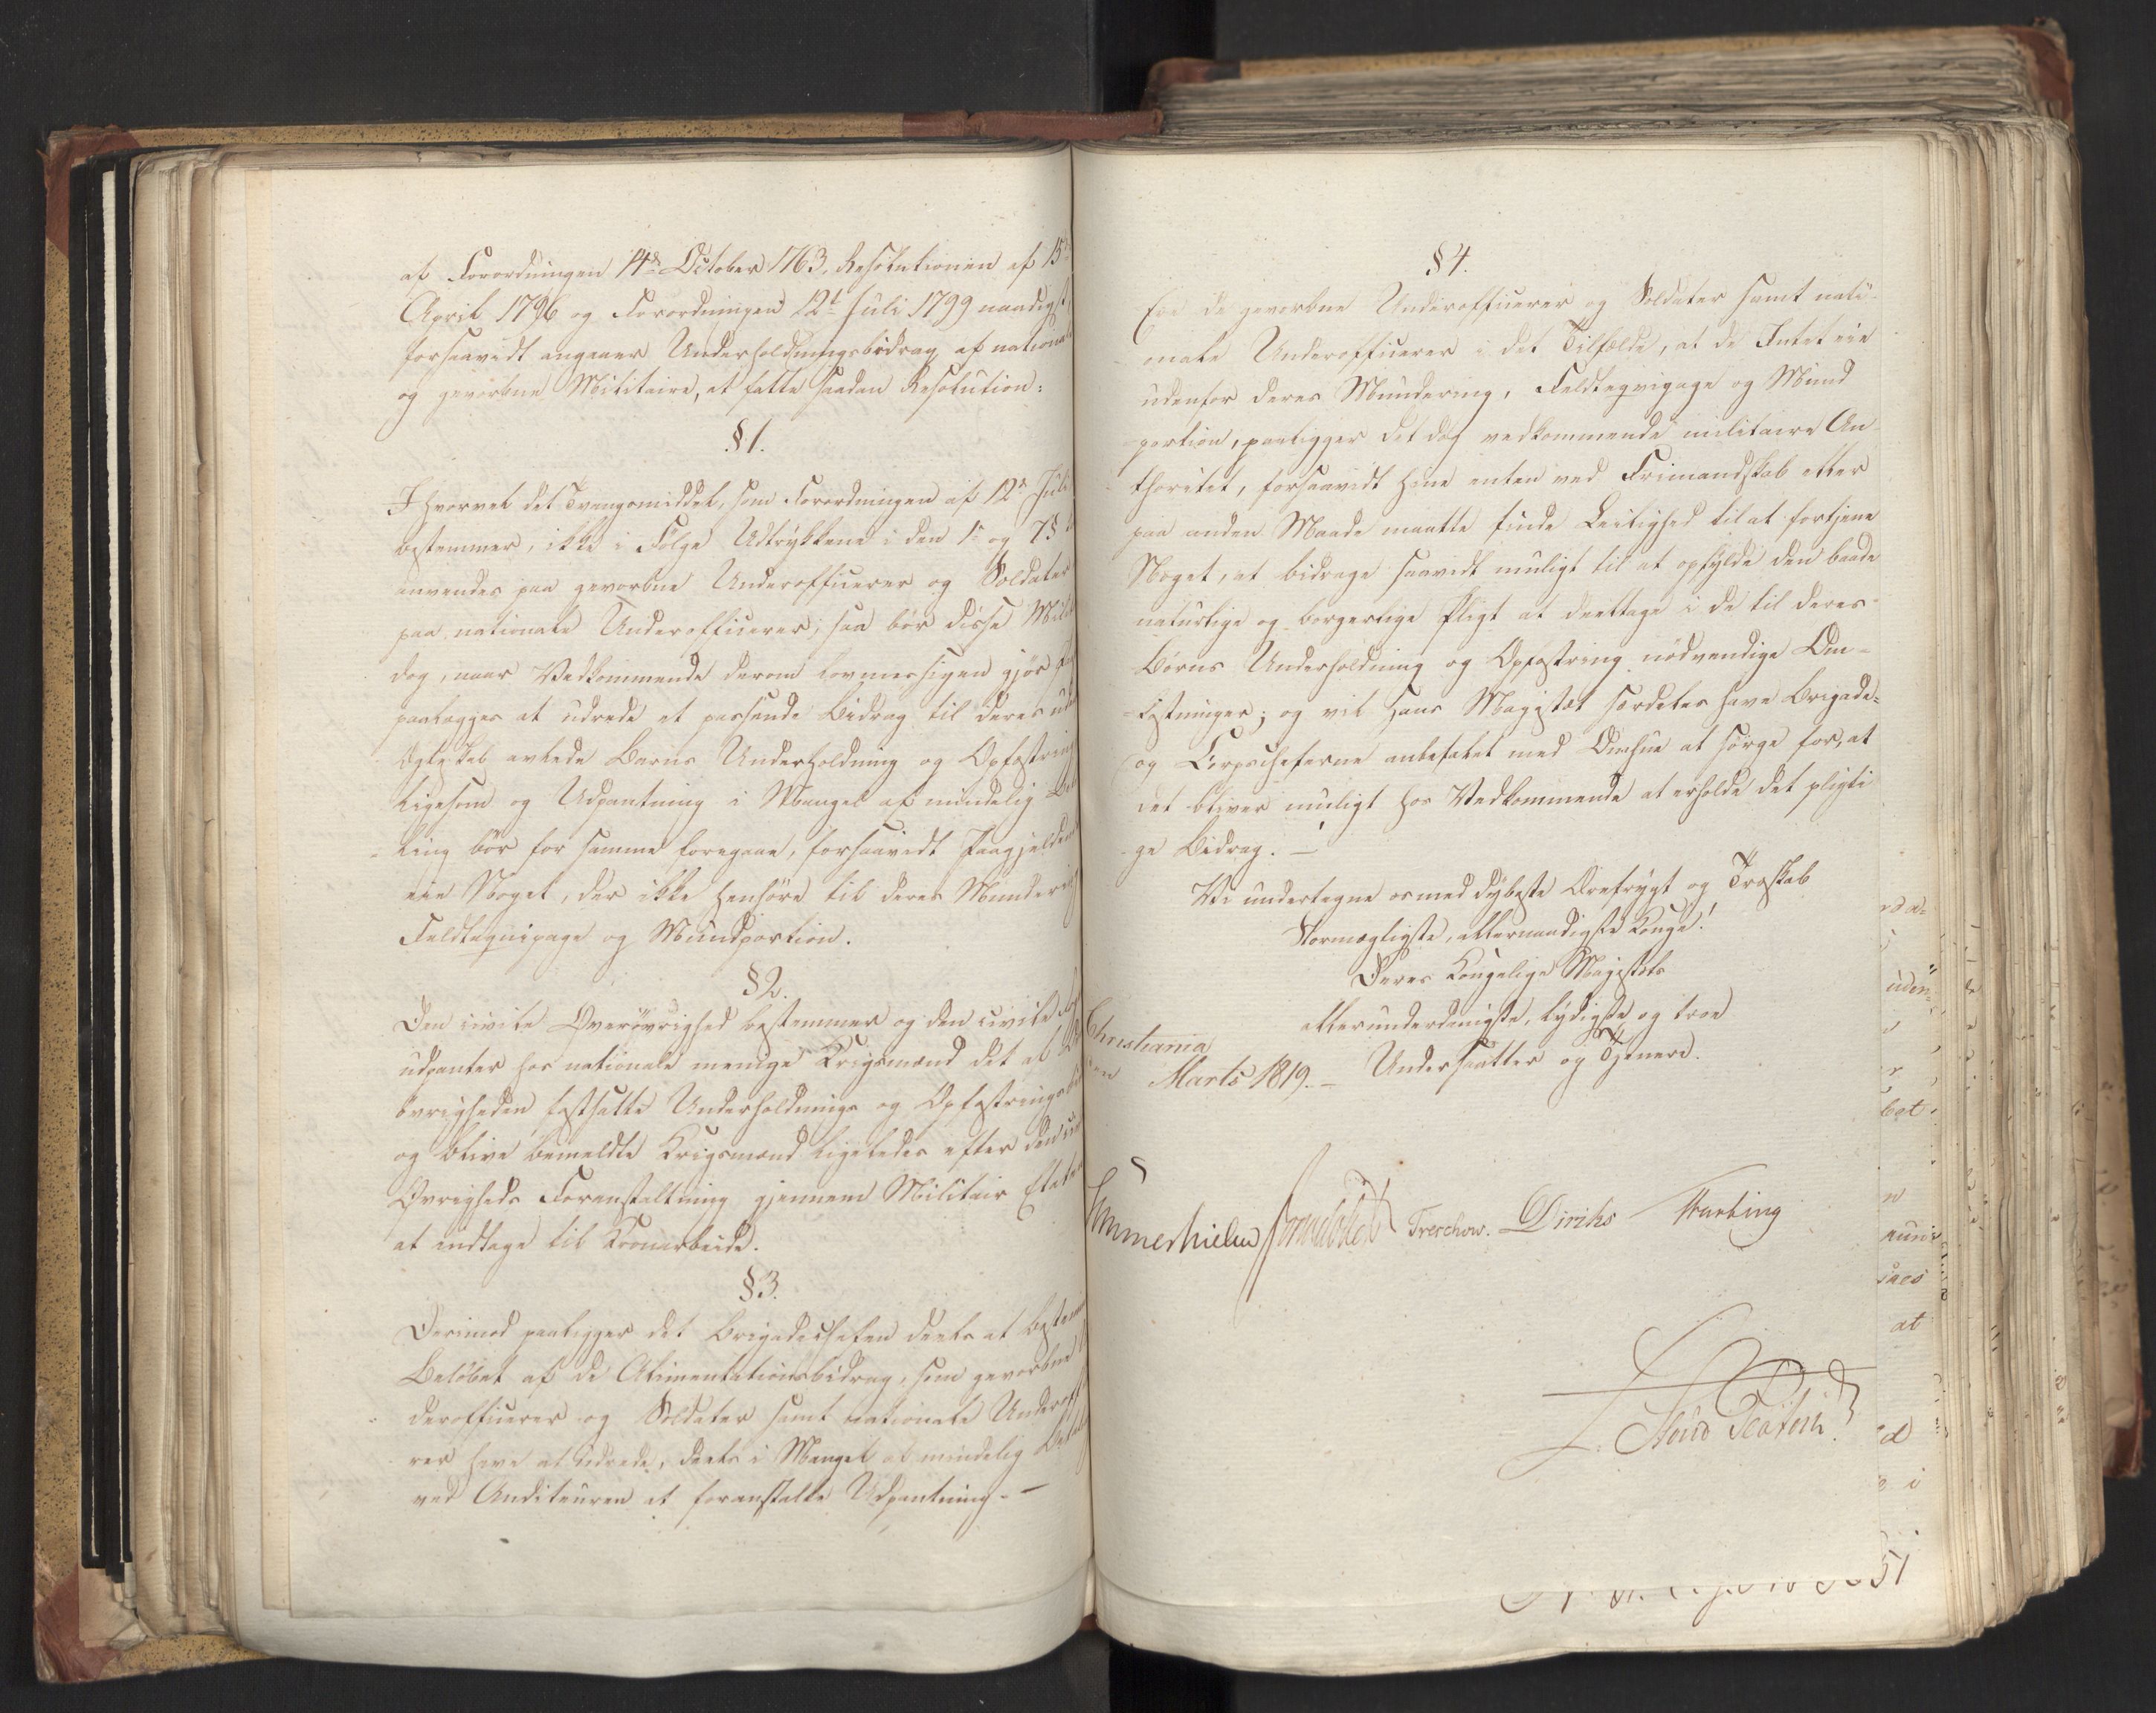 af Forordningen 14de October 1763, Resolutionen af 15de
April 1796 og Forordningen 12te Juli 1799 naadigst,
forsaavidt angaaer Underholdningsbidrag af national
og gevorbne Militaire, at fatte saadan Resolution:
§ 1.
Ihvorvel det Tvangsmiddel, som Forordningen af 12te Juli
bestemmer, ikke i Følge Udtrykkene i den 1e og 7 §
anvendes paa gevorbne Underofficerer og Soldater
paa nationale Underofficerer, saa bør disse
dog, naar Vedkommende derom lovmessigen gjør
paalægges at udrede et passende Bidrag til deres
Ægteskab avlede Barns Underholdning og Opfostring
ligesom og Udpantning i Mangel af mindelig
ling bør for samme foregaae, forsaavidt Paagjældende
eie Noget, der ikke henhøre til deres Mundering
Feldteqvipage og Mundportion.
§ 2.
Den civile Øverøvrighed bestemmer og den civile
udpanter hos nationale menige Krigsmænd det af
øvrigheden fastsatte Underholdnings og Opfostrings
og blive bemeldte Krigsmænd ligeledes efter den
Øvrigheds Foranstaltning gjennem Militair Etaten
at indtage til Kronarbeide.
§ 3.
Derimod paaligger det Brigadechefen deels at bestemme
Beløbet af de Alimentationsbidrag, som gevorbne
derofficerer og Soldater samt nationale
rer have at udrede, deels i Mangel af mindelig
ved Auditeuren at foranstalte Udpantning. –
§ 4.
Ere de gevorbne Underofficerer og Soldater samt nati-
onale Underofficerer i det Tilfælde, at de Intet eie
udenfor deres Mundering, Feldteqvipage og Mund
portion, paaligger det dog vedkommende militaire Au-
thoritet, forsaavidt hine enten ved Frimandskab eller
paa anden Maade maatte finde Leilighed til at fortjene
Noget, at bidrage saavidt muligt til at opfylde den baade
naturlige og borgerlige Pligt at deeltage i de til deres
Børns Underholdning og Opfostring nødvendige Om-
kostninger; og vil Hans Majestæt særdeles have Brigade-
og Corpscheferne anbefalet med Omhue at sørge for, at
det bliver muligt hos Vedkommende at erholde det pligti
ge Bidrag. –
Vi undertegne os med dybeste Ærefrygt og Troskab
Stormægtigste, allernaadigste Konge!
Deres Kongelige Majestæts
allerunderdanigste, lydigste og troe
Christiania
Undersaatter og Tjenere.
Marts 1819. –
Treschow. Diriks